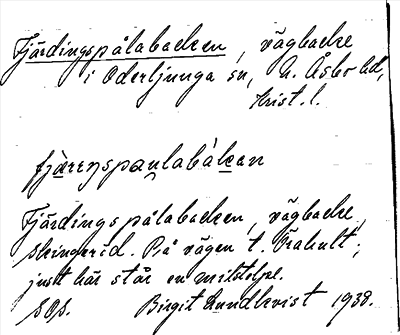 Fjärdingspålabacken, vägbacke
i Oderljunga sn, N. Åsbo hd,
Krist. l.
fjä̱rɛŋspau̯labàḵan
Fjärdingspålabacken, vägbacke,
Skingeröd. På vägen t. Örahult;
just här står en milstolpe.
SOs. Birgit Lundkvist 1938.